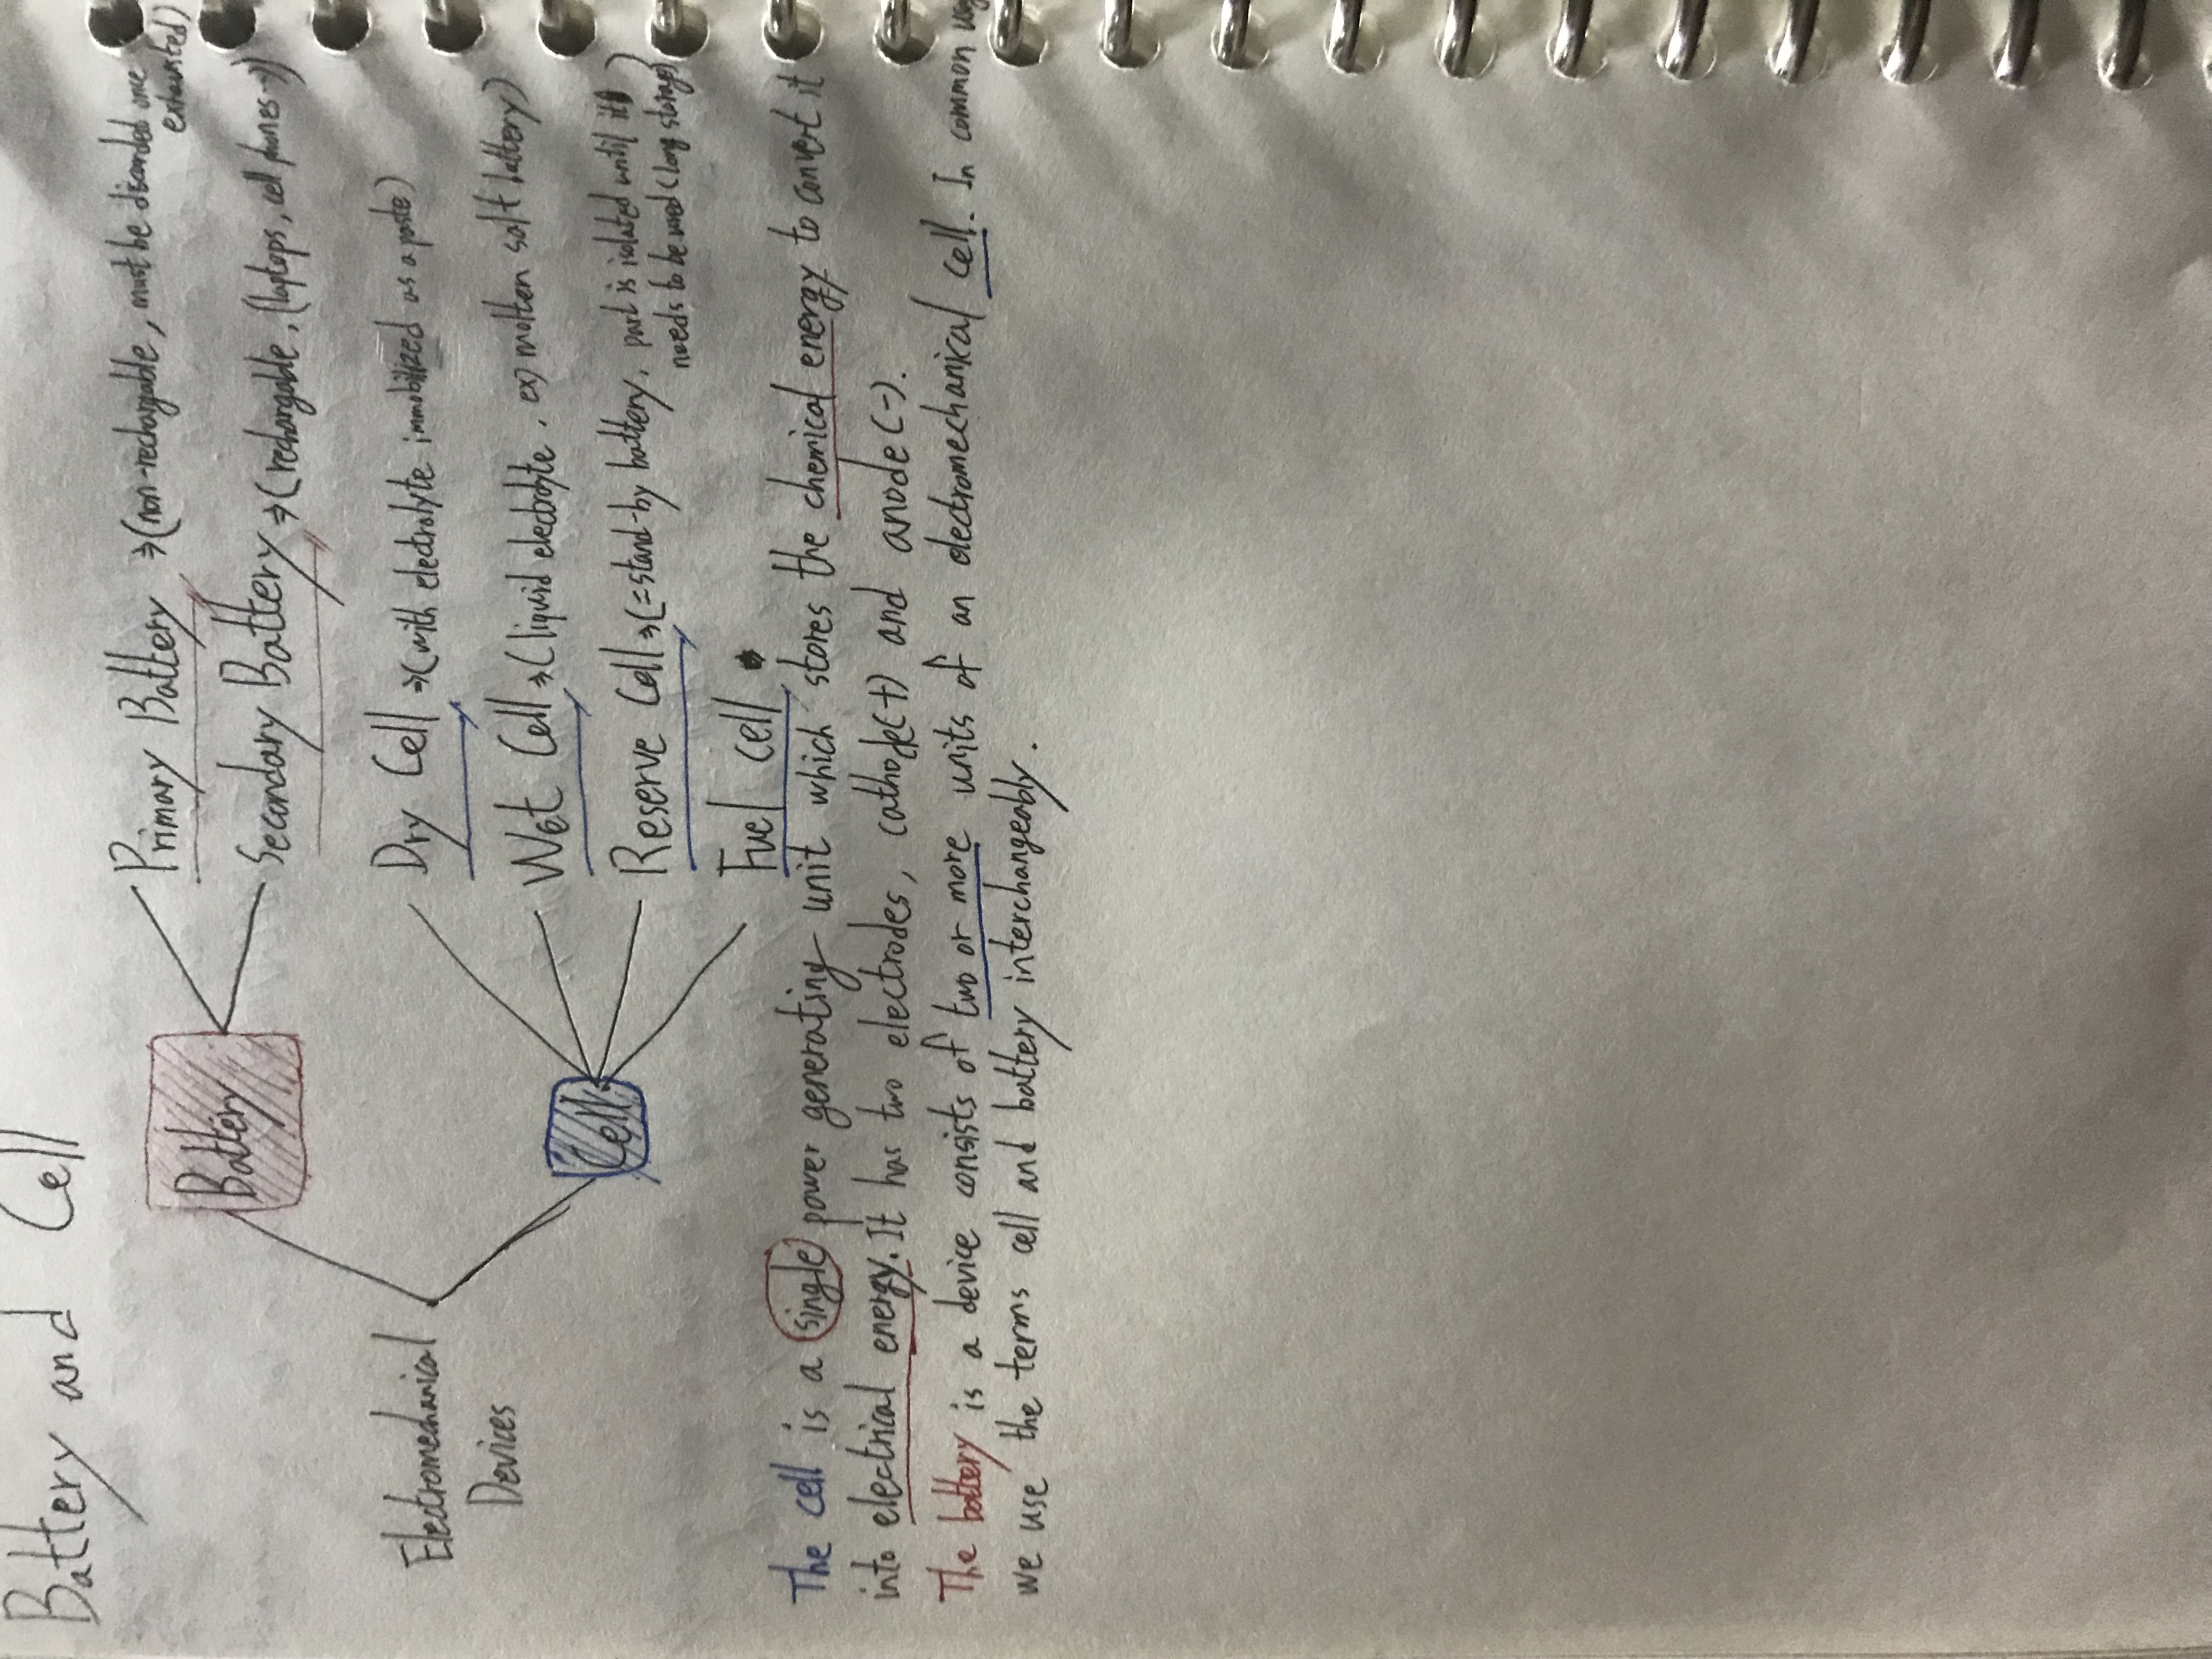 Battery and Cell
Primary Battery ⇒ (non-rechargable, must be discarded once
exhausted)
Battery
Secondary Battery ⇒ (rechangable, (laptops, cell phones→)
Electromechanical
Devices
Dry Cell ⇒ (with electrolyte immobilized as a paste)
Wet Cell ⇒ (liquid electrolyte, ex) molten salt battery)
Cell
Reserve Cell ⇒ (= stand-by battery, part is isolated until it
needs to be used (long storage)
Fuel Cell
The cell is a single power generating unit which stores the chemical energy to convert it
into electrical energy. It has two electrodes, cathode(+) and anode(-).
The battery is a device consists of two or more units of an electromechanical cell. In common
we use the terms cell and battery interchangeably.